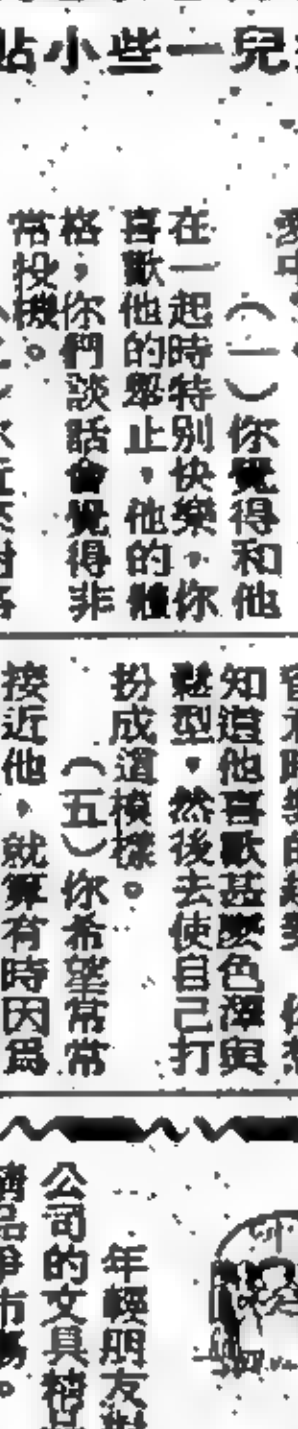 貼小些一兒
（一）你覺得和他
在一起時特別快樂，你
喜歡他的舉止，他的體
格，你們談話會覺得非
常投機。
知道他喜歡甚麼色澤與
髮型，然後去使自己打
扮成這模樣。
（五）你希望常常
接近他，就算有時因爲
年輕朋友
公司的文具